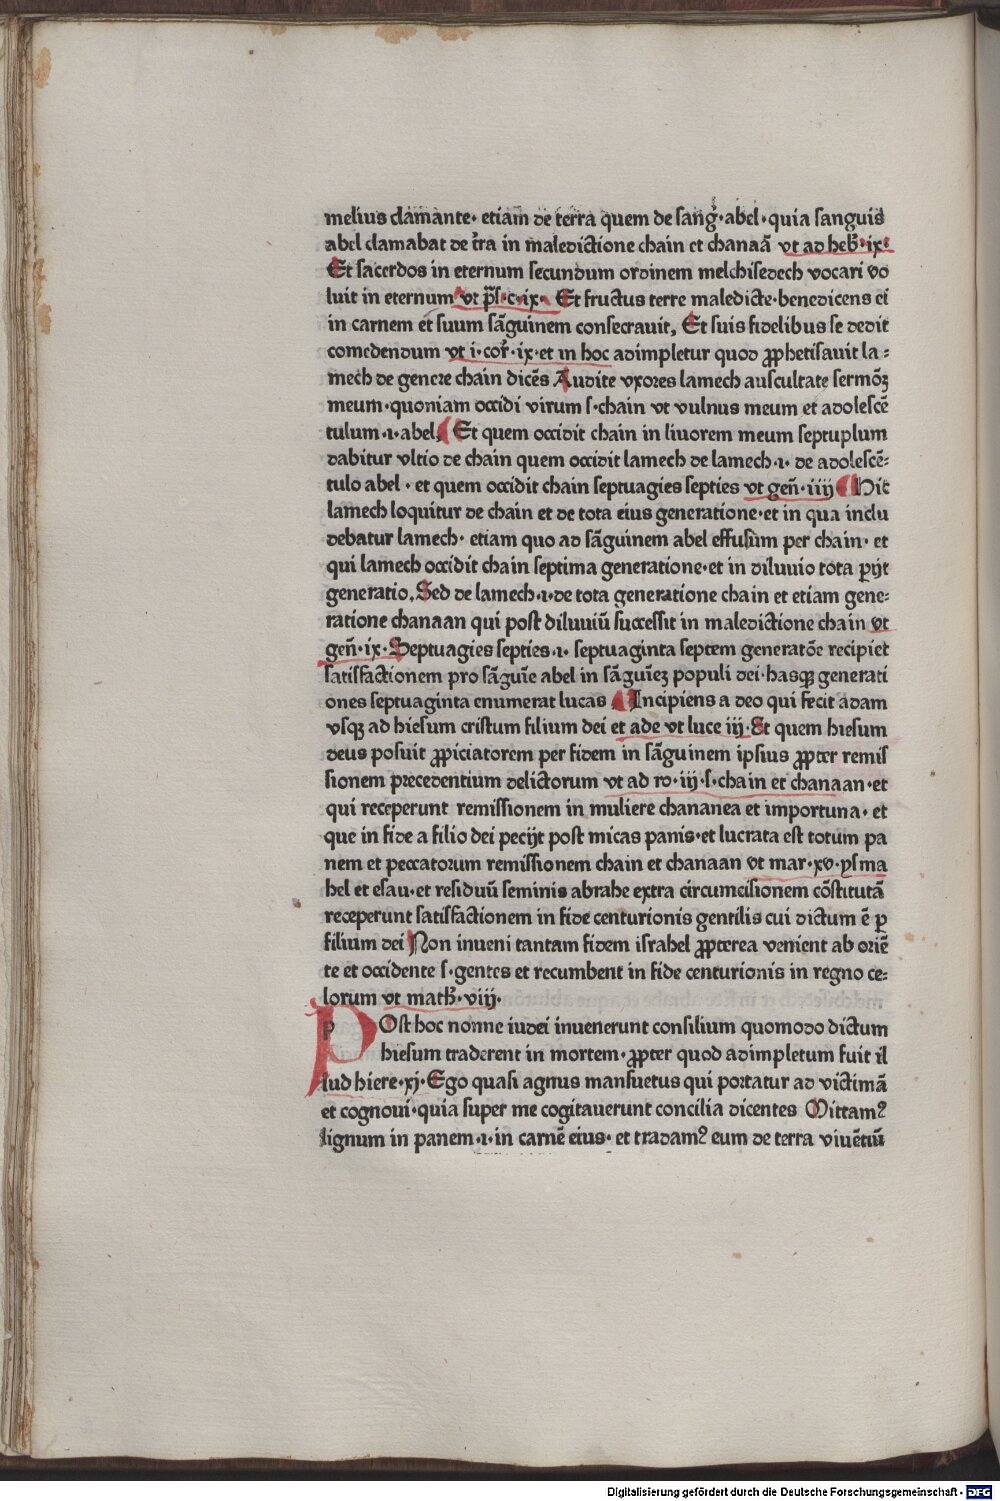 melius clamante· etiam de terra quem de sang̃·abel·quia sanguis
abel clamabat de t̃ra in maledictione chain et chanaã vt ad heb̃·ix·
Et sacerdos in eternum secundum ordinem melchisedech vocari vo
luit in eternum·vt p̃s·c·ix· Et fructus terre maledicte·benedicens ei
in carnem et suum sãguinem consecrauit, Et suis fidelibus se dedit
comedendum vt i·cor̃·ix·et in hoc adimpletur quod ꝓphetisauit la⸗
mech de genere chain dicẽs Audite vxores lamech auscultate sermõꝫ
meum·quoniam occidi virum s·chain vt vulnus meum et adolescẽ
tulum·i·abel, Et quem occidit chain in liuorem meum septuplum
dabitur vltio de chain quem occidit lamech de lamech·i· de adolescẽ⸗
tulo abel· et quem occidit chain septuagies septies vt geñ·iiij Hic
lamech loquitur de chain et de tota eius generatione·et in qua inclu
debatur lamech· etiam quo ad sãguinem abel effusum per chain· et
qui lamech occidit chain septima generatione·et in diluuio tota ꝑijt
generatio, Sed de lamech·i·de tota generatione chain et etiam gene⸗
ratione chanaan qui post diluuiũ successit in maledictione chain vt
geñ·ix· Septuagies septies·i· septuaginta septem generatõe recipiet
satisfactionem pro sãguĩe abel in sãguĩeꝫ populi dei·hasqꝫ generati
ones septuaginta enumerat lucas Incipiens a deo qui fecit adam
vsqꝫ ad hiesum cristum filium dei et ade vt luce iij·Et quem hiesum
deus posuit ꝓpiciatorem per fidem in sãguinem ipsius ꝓpter remis
sionem precedentium delictorum vt ad ro·iij·s·chain et chanaan·et
qui receperunt remissionem in muliere chananea et importuna· et
que in fide a filio dei pecijt post micas panis·et lucrata est totum pa
nem et peccatorum remissionem chain et chanaan vt mar·xv·ysma
hel et esau·et residuũ seminis abrahe extra circumcisionem cõstitutã
receperunt satisfactionem in fide centurionis gentilis cui dictum ẽ ꝑ
filium dei Non inueni tantam fidem israhel ꝓpterea venient ab oriẽ
te et occidente s·gentes et recumbent in fide centurionis in regno ce⸗
lorum vt math̃·viij·
POst hoc nonne iudei inuenerunt consilium quomodo dictum
hiesum traderent in mortem·ꝓpter quod adimpletum fuit il
lud hiere·xj·Ego quasi agnus mansuetus qui portatur ad victimã
et cognoui·quia super me cogitauerunt concilia dicentes Mittamꝰ
lignum in panem·i·in carnẽ eius· et tradamꝰ eum de terra viuẽtiũ
Digitalisierung gefördert durch die Deutsche Forschungsgemeinschaft · DFG